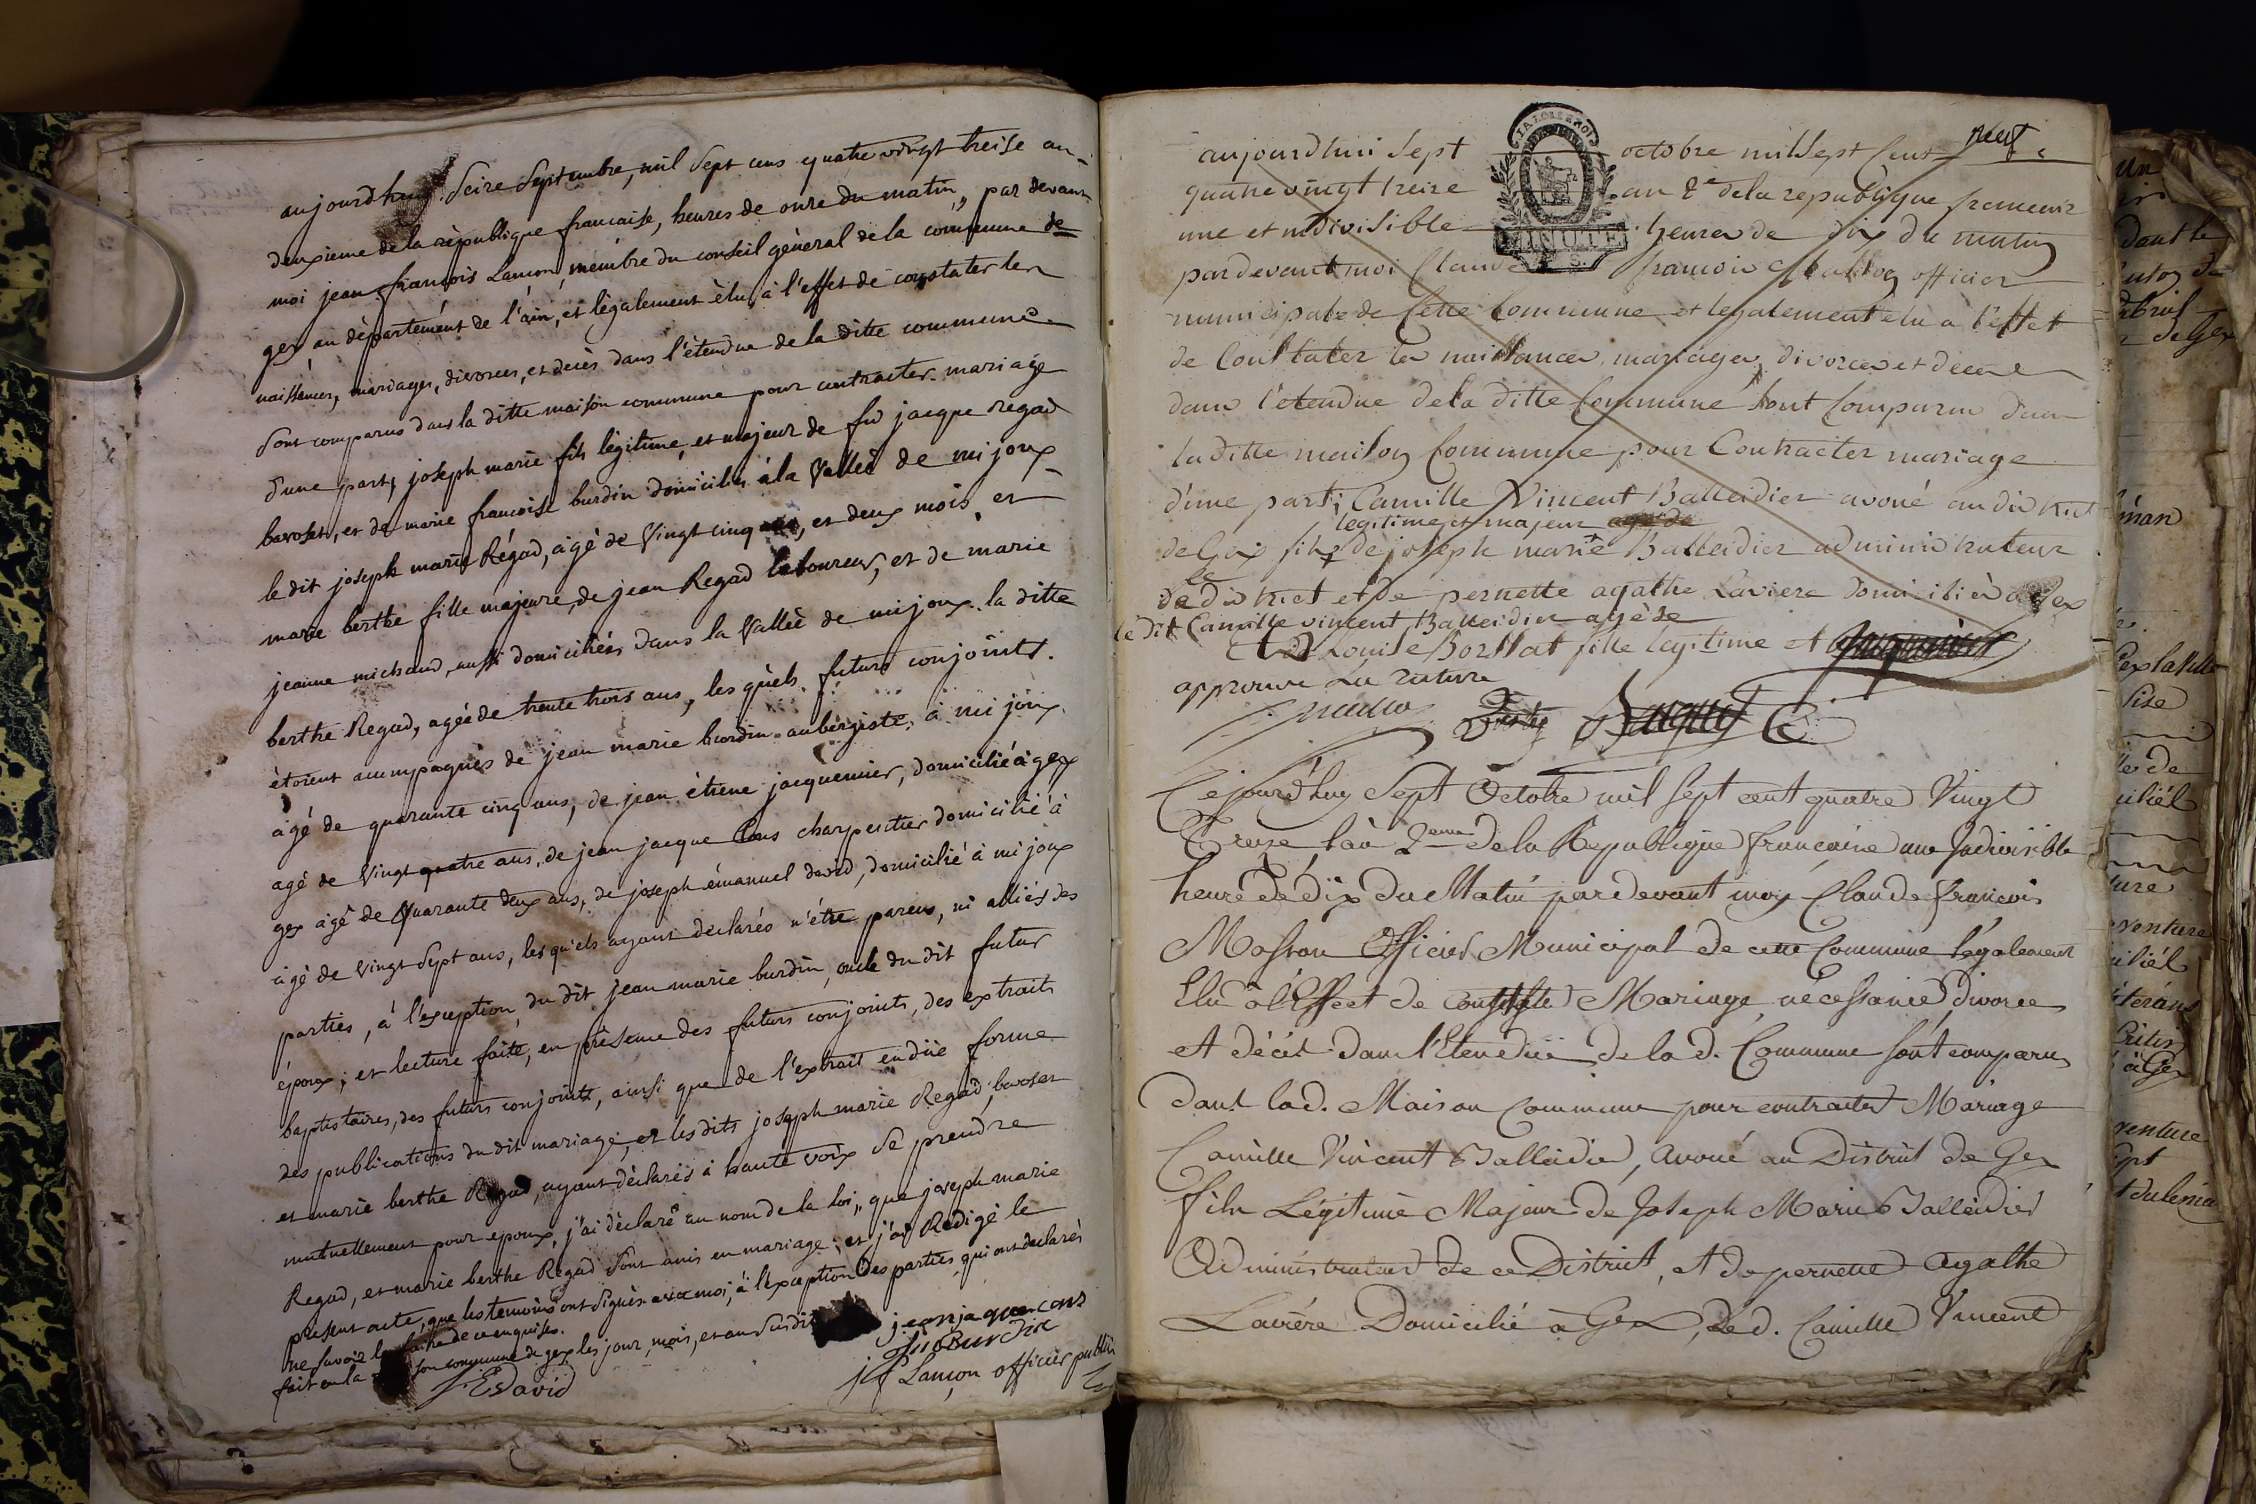 aujourd'huy seize Septembre, mil Sept cens quatre vingt treise an-
deuxieme de la république francaise, heures de onze du matin,, par devant
moi jean françois Lançon, mémbre du conseil géneral de la commune de
gex au département de l'ain, et légalement élu, à l'effet de constater les
naissances, mariages, divorces, et decès dans l'étendue de la ditte commune
sont comparus dans la ditte maison commune pour contracter mariage
d'une part, joseph marie fils légitime, et majeur de fû jacque regad
bavoset, et de marie francoise burdin domiciliés à la Valleé de mijoux
le dit joseph marie Régad, âgé de Vingt cinq, et deux mois, et
marie berthe fille majeure, de jean Regad laboureur, et de marie
jeanne michaud, aussi domiciliés dans la Valleé de mijoux. la ditte
berthe Regad, agée de trente trois ans, les quels futurs conjoints.
étoient accompagnés de jean marie burdin aubergiste, à mijoux
âgé de quarante cinq ans, de jean étiene jacquemier, domicilié à gex
agé de Vingt quatre ans, de jean jacque Cons charpentier domicilié à
gex âgé de Quarante deux ans, de joseph émanuel david, domicilié à mijoux
âgé de Vingt Sept ans, lesquels ayant déclarés n'être parens, ni alliés des
parties, à l'exception du dit jean marie burdin, oncle du dit futur
époux; et lecture faite, en présence des futurs conjoints, des extraits
baptistaires, des futurs conjoints, ainsi que de l'extrait en düe forme
des publications du dit mariage, et les dits joseph marie Regad, bavoset
et marie berthe Regad, ayant déclarés à haute voix se prendre
mutuellement pour epoux, j'ai déclaré au nom de la loi,, que joseph marie
Regad, et marie berthe Regad Sont unis en mariage; et j'ai Redigé le
présent acte, que les temoins ont signés avec moi, à l'exception des parties, qui ont declarés
ne savoir le faire de ce enquises.
fait en la son commune de gex les jour, mois, et an susdit
jean jaque cons
Burdin
J E David
jf Lançon officier public
neuf
aujourdhui sept octobre mil sept Cent
quatre vingt treize an 2e de la republique francaise
une et indivisible heures de dix du matin
pardevant moi Claude francois officier
municipal de Cette Commune et legalement elu a l'effet
de Constater les naissances, mariages, divorces et deces
dans l'étendue de la ditte Commune sont Comparus dans
la ditte maison Commune pour Contracter mariage
d'une part; Camille Vincent Balleidier avoué au district
legitime et majeur age de
de Gex fils de joseph marie Balleidier administrateur
de ce district et de pernette agathe Laviere domiciliés a Gex
le dit Camille vincent Balleidier agé de
Et Louise Borssat fille legitime et
approuvé La rature
Cejourd'huy Sept Octobre mil Sept cent quatre Vingt
Treize l'an 2eme de la Republique francaise une Indivisible
heure de dix du Matin pardevant moy Claude francois
Officier Municipal de cette Commune légalement
Elu à l'Effect de Constater Mariage, nécessance, divorce
et décès dans l'Etendüe de la d. Commune sont comparus
dans lad. Maison Commune pour contracter Mariage
Camille Vincent Balleidier, avoué au District de Gex
fils Légitime Majeur de Joseph Marie Balleidier
Administrateur de ce District, et de pernette Agathe
Lavière Domicilié à Gex, Led. Camille Vincent